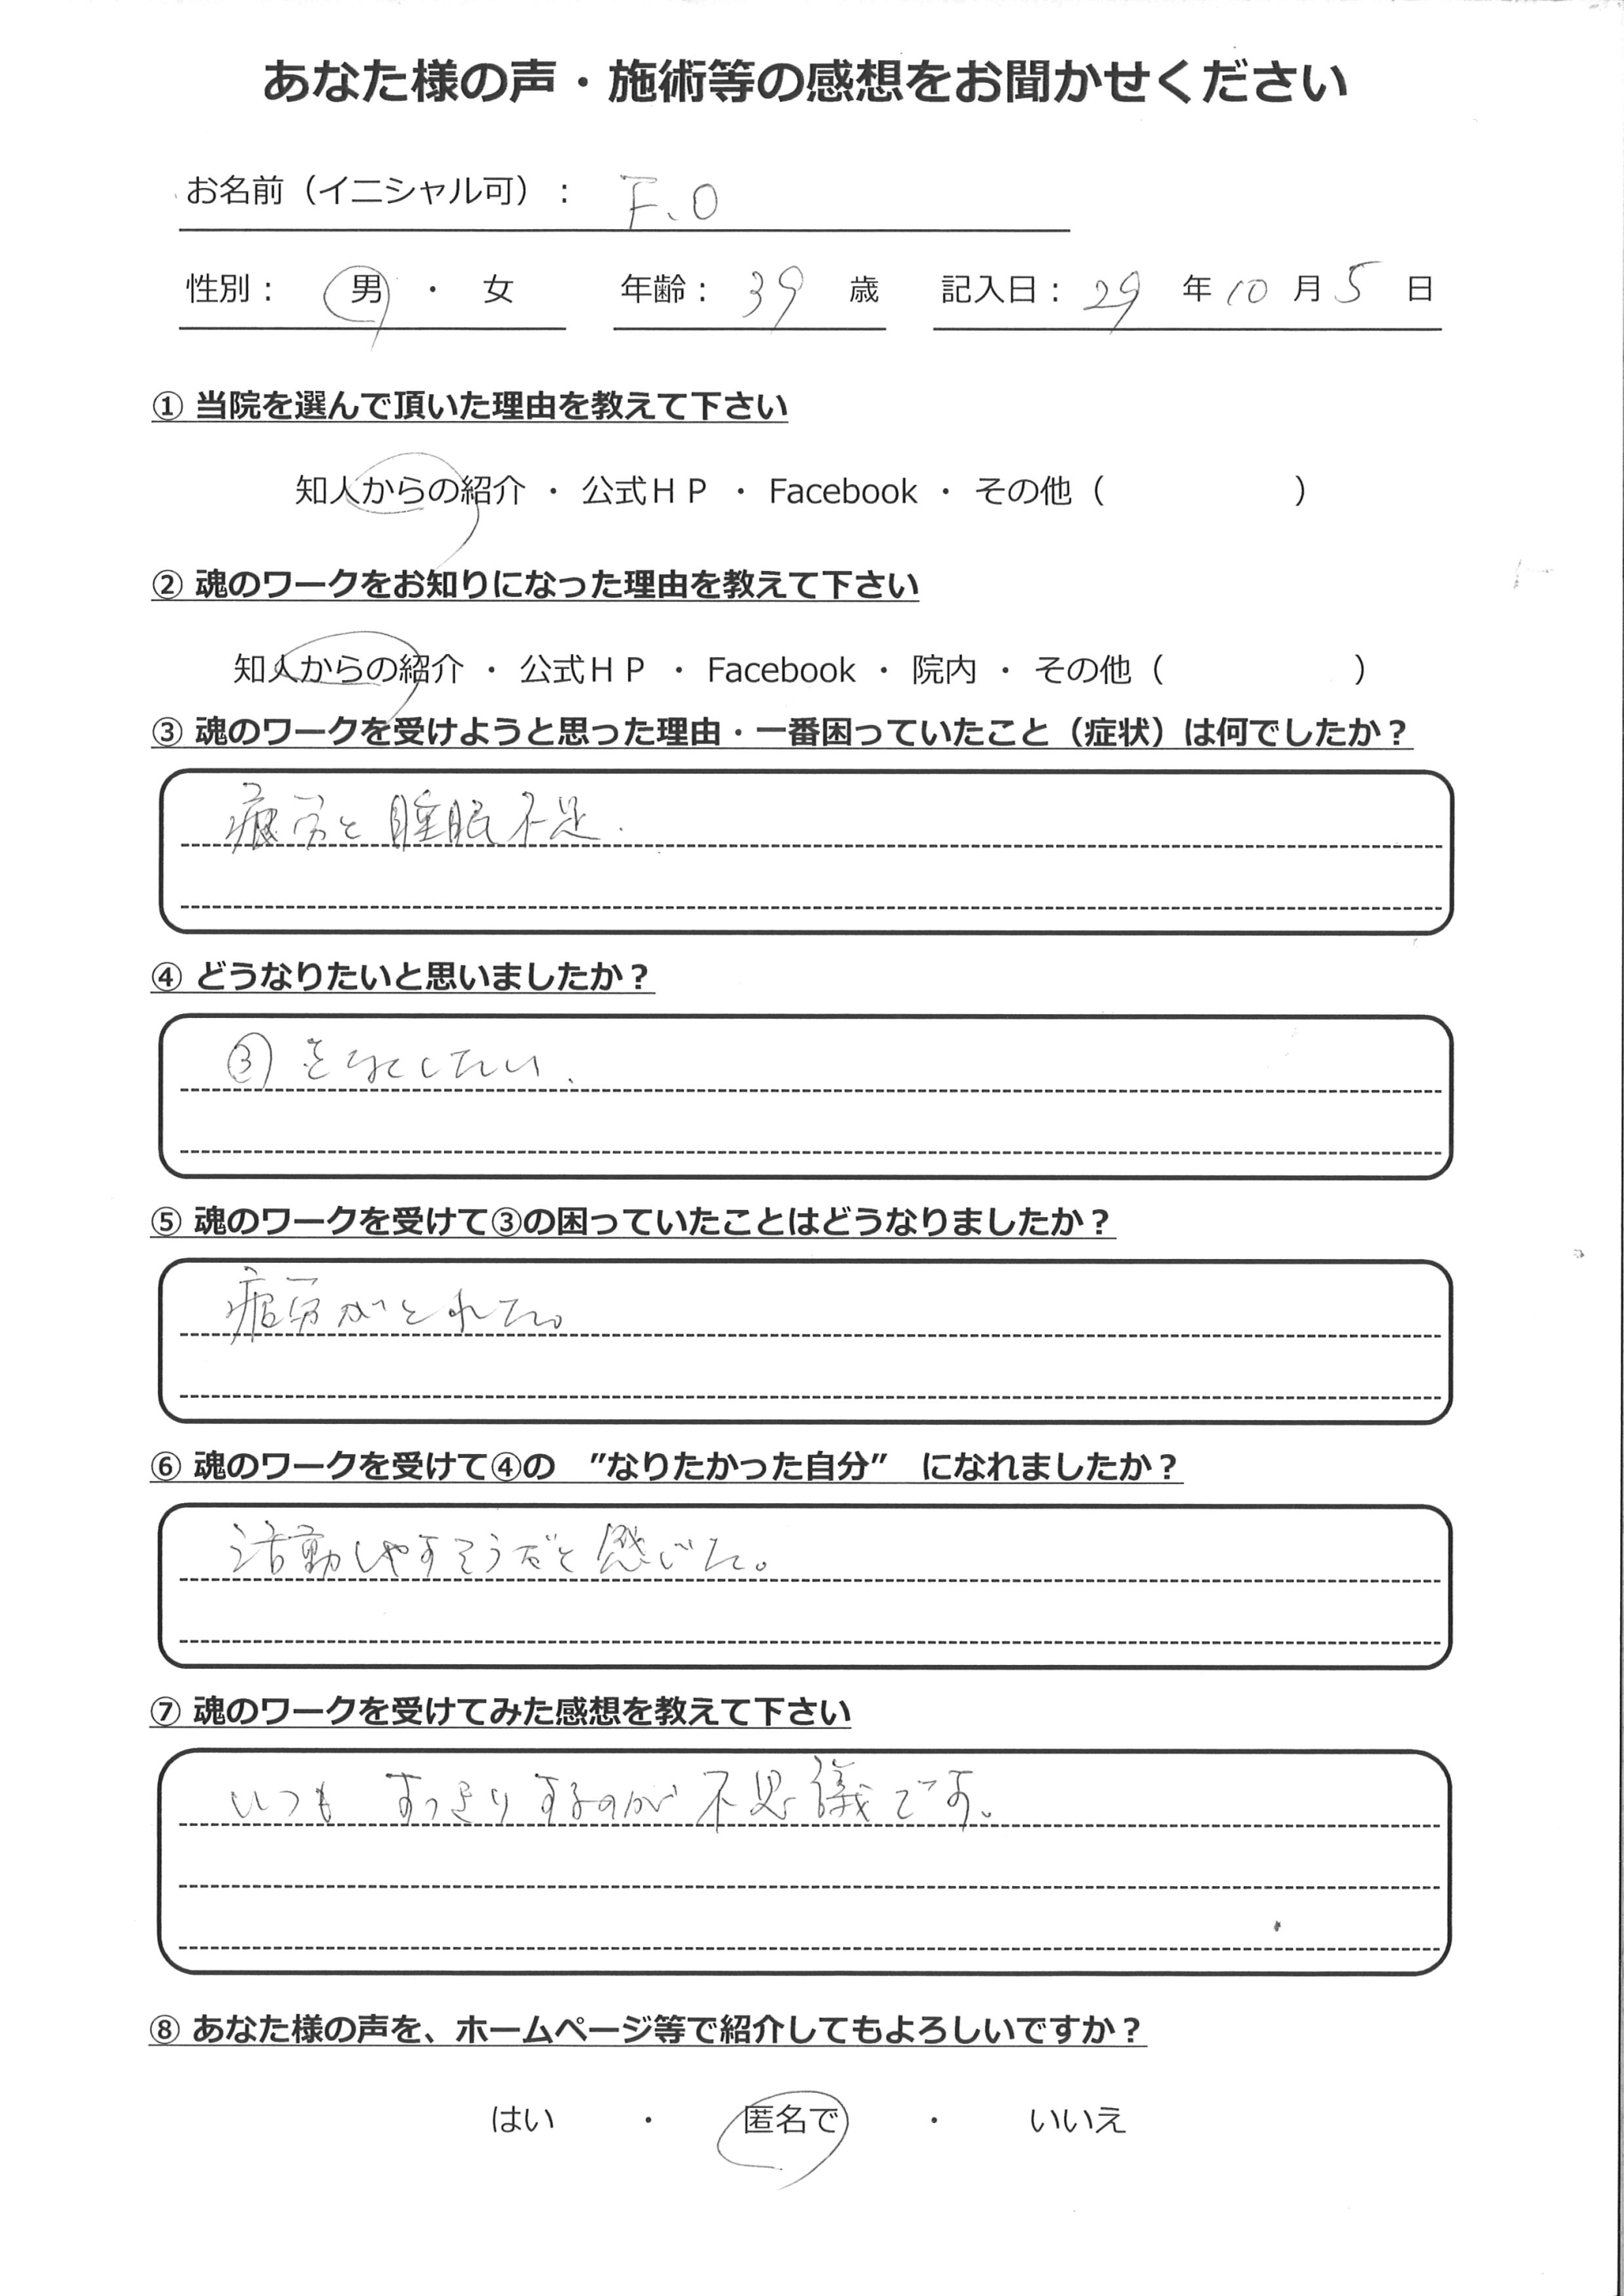 あなた様の声・施術等の感想をお聞かせください
お名前（イニシャル可）： F.O
性別： 男 ・ 女 年齢： 39 歳 記入日： 29 年 10 月 5 日
① 当院を選んで頂いた理由を教えて下さい
知人からの紹介 ・ 公式ＨＰ ・ Facebook ・ その他（ ）
② 魂のワークをお知りになった理由を教えて下さい
知人からの紹介 ・ 公式ＨＰ ・ Facebook ・ 院内 ・ その他（ ）
③ 魂のワークを受けようと思った理由・一番困っていたこと（症状）は何でしたか？
疲労と睡眠不足.
④ どうなりたいと思いましたか？
③をなくしたい.
⑤ 魂のワークを受けて③の困っていたことはどうなりましたか？
疲労がとれた。
⑥ 魂のワークを受けて④の　”なりたかった自分”　になれましたか？
活動しやすそうだと感じた。
⑦ 魂のワークを受けてみた感想を教えて下さい
いつも すっきりするのが不思議です。
⑧ あなた様の声を、ホームページ等で紹介してもよろしいですか？
はい ・ 匿名で ・ いいえ